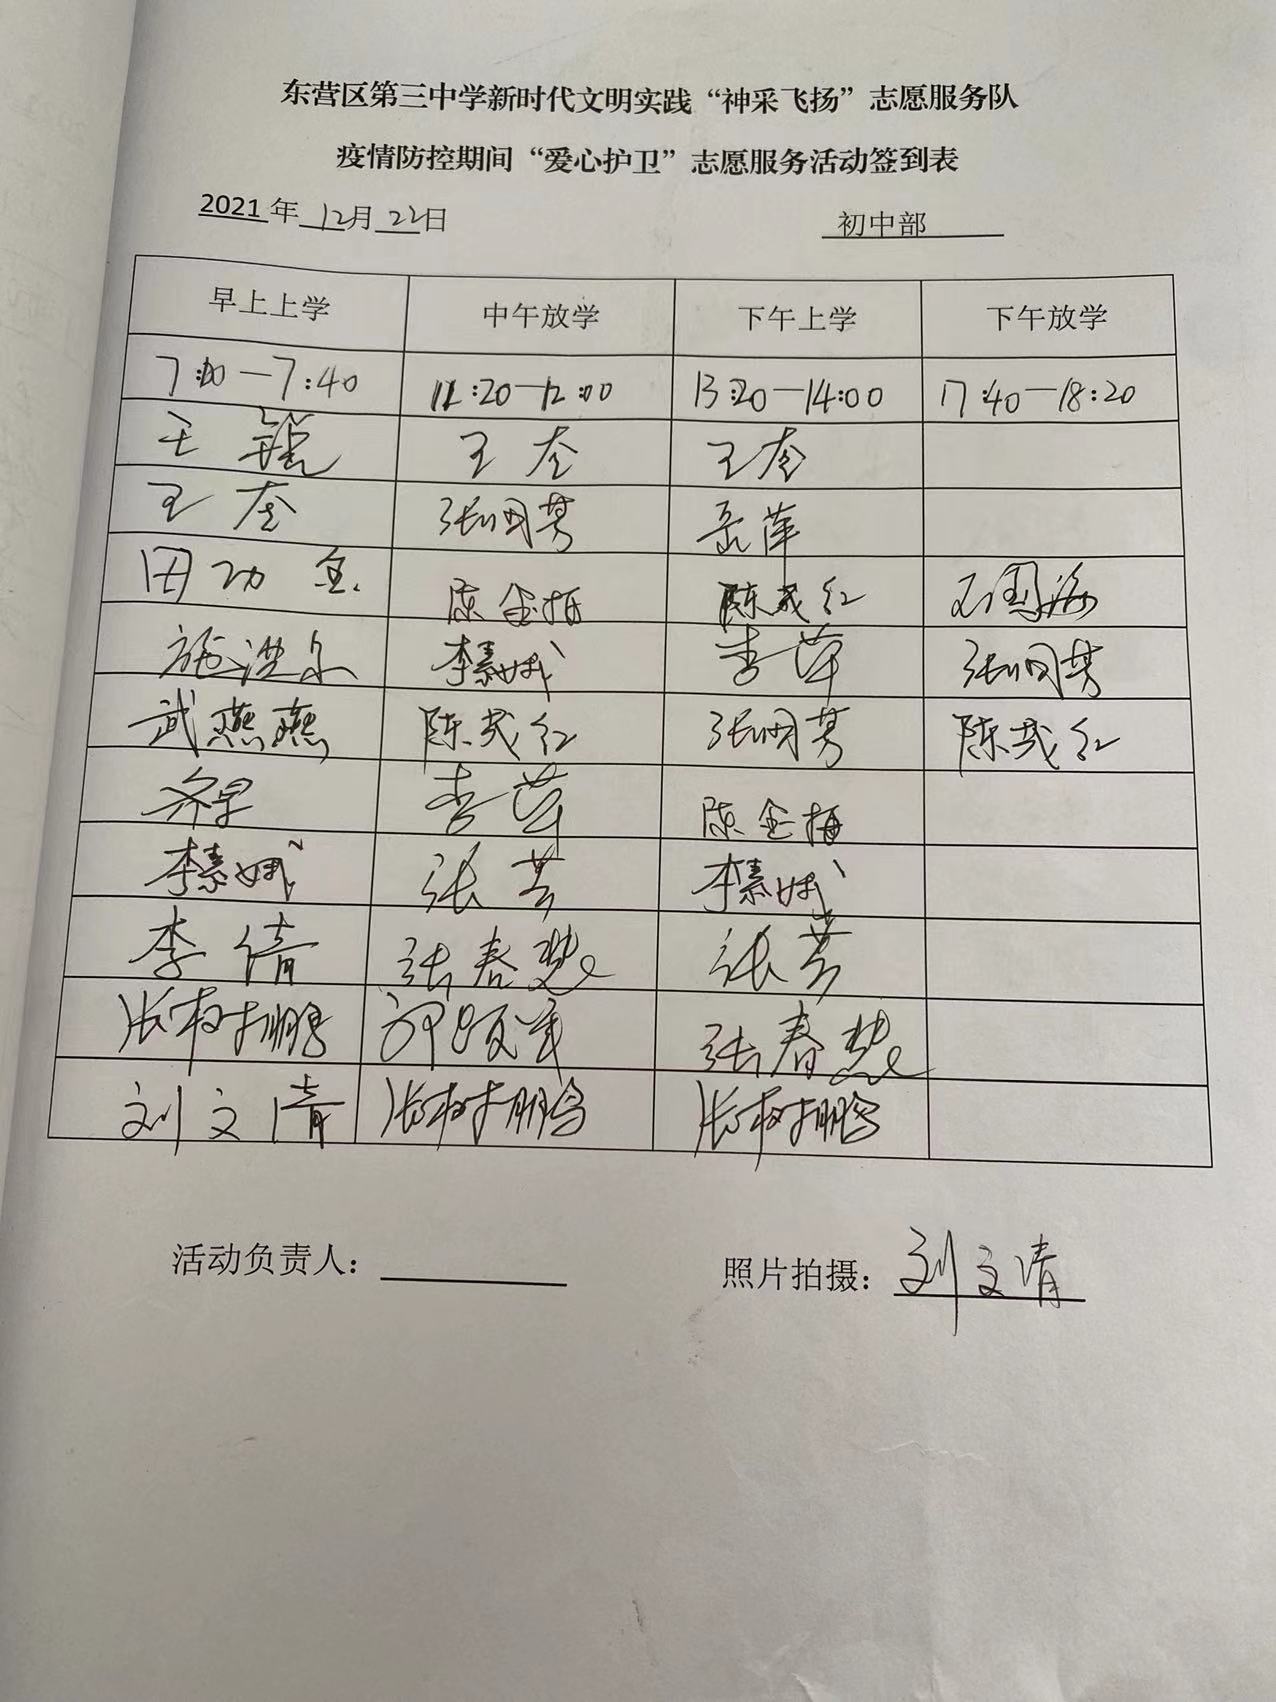 东营区第三中学新时代文明实践“神采飞扬”志愿服务队
疫情防控期间“爱心护卫”志愿服务活动签到表
2021年 12月 22日 初中部
早上上学 中午放学 下午上学 下午放学
7:00—7:40 11:20—12:00 13:20—14:00 17:40—18:20
王锐 王奎 王奎
王奎 张国芳 岳萍
田功 陈金梅 陈成红 石国海
李素娥 李萍 张国芳
武燕燕 陈成红 张国芳 陈成红
齐早 李萍 陈金梅
李素娥 张芳 李素娥
李倩 张春慧 张芳
张树鹏 张春慧
刘文清 张树鹏 张树鹏
活动负责人: 照片拍摄: 刘文清